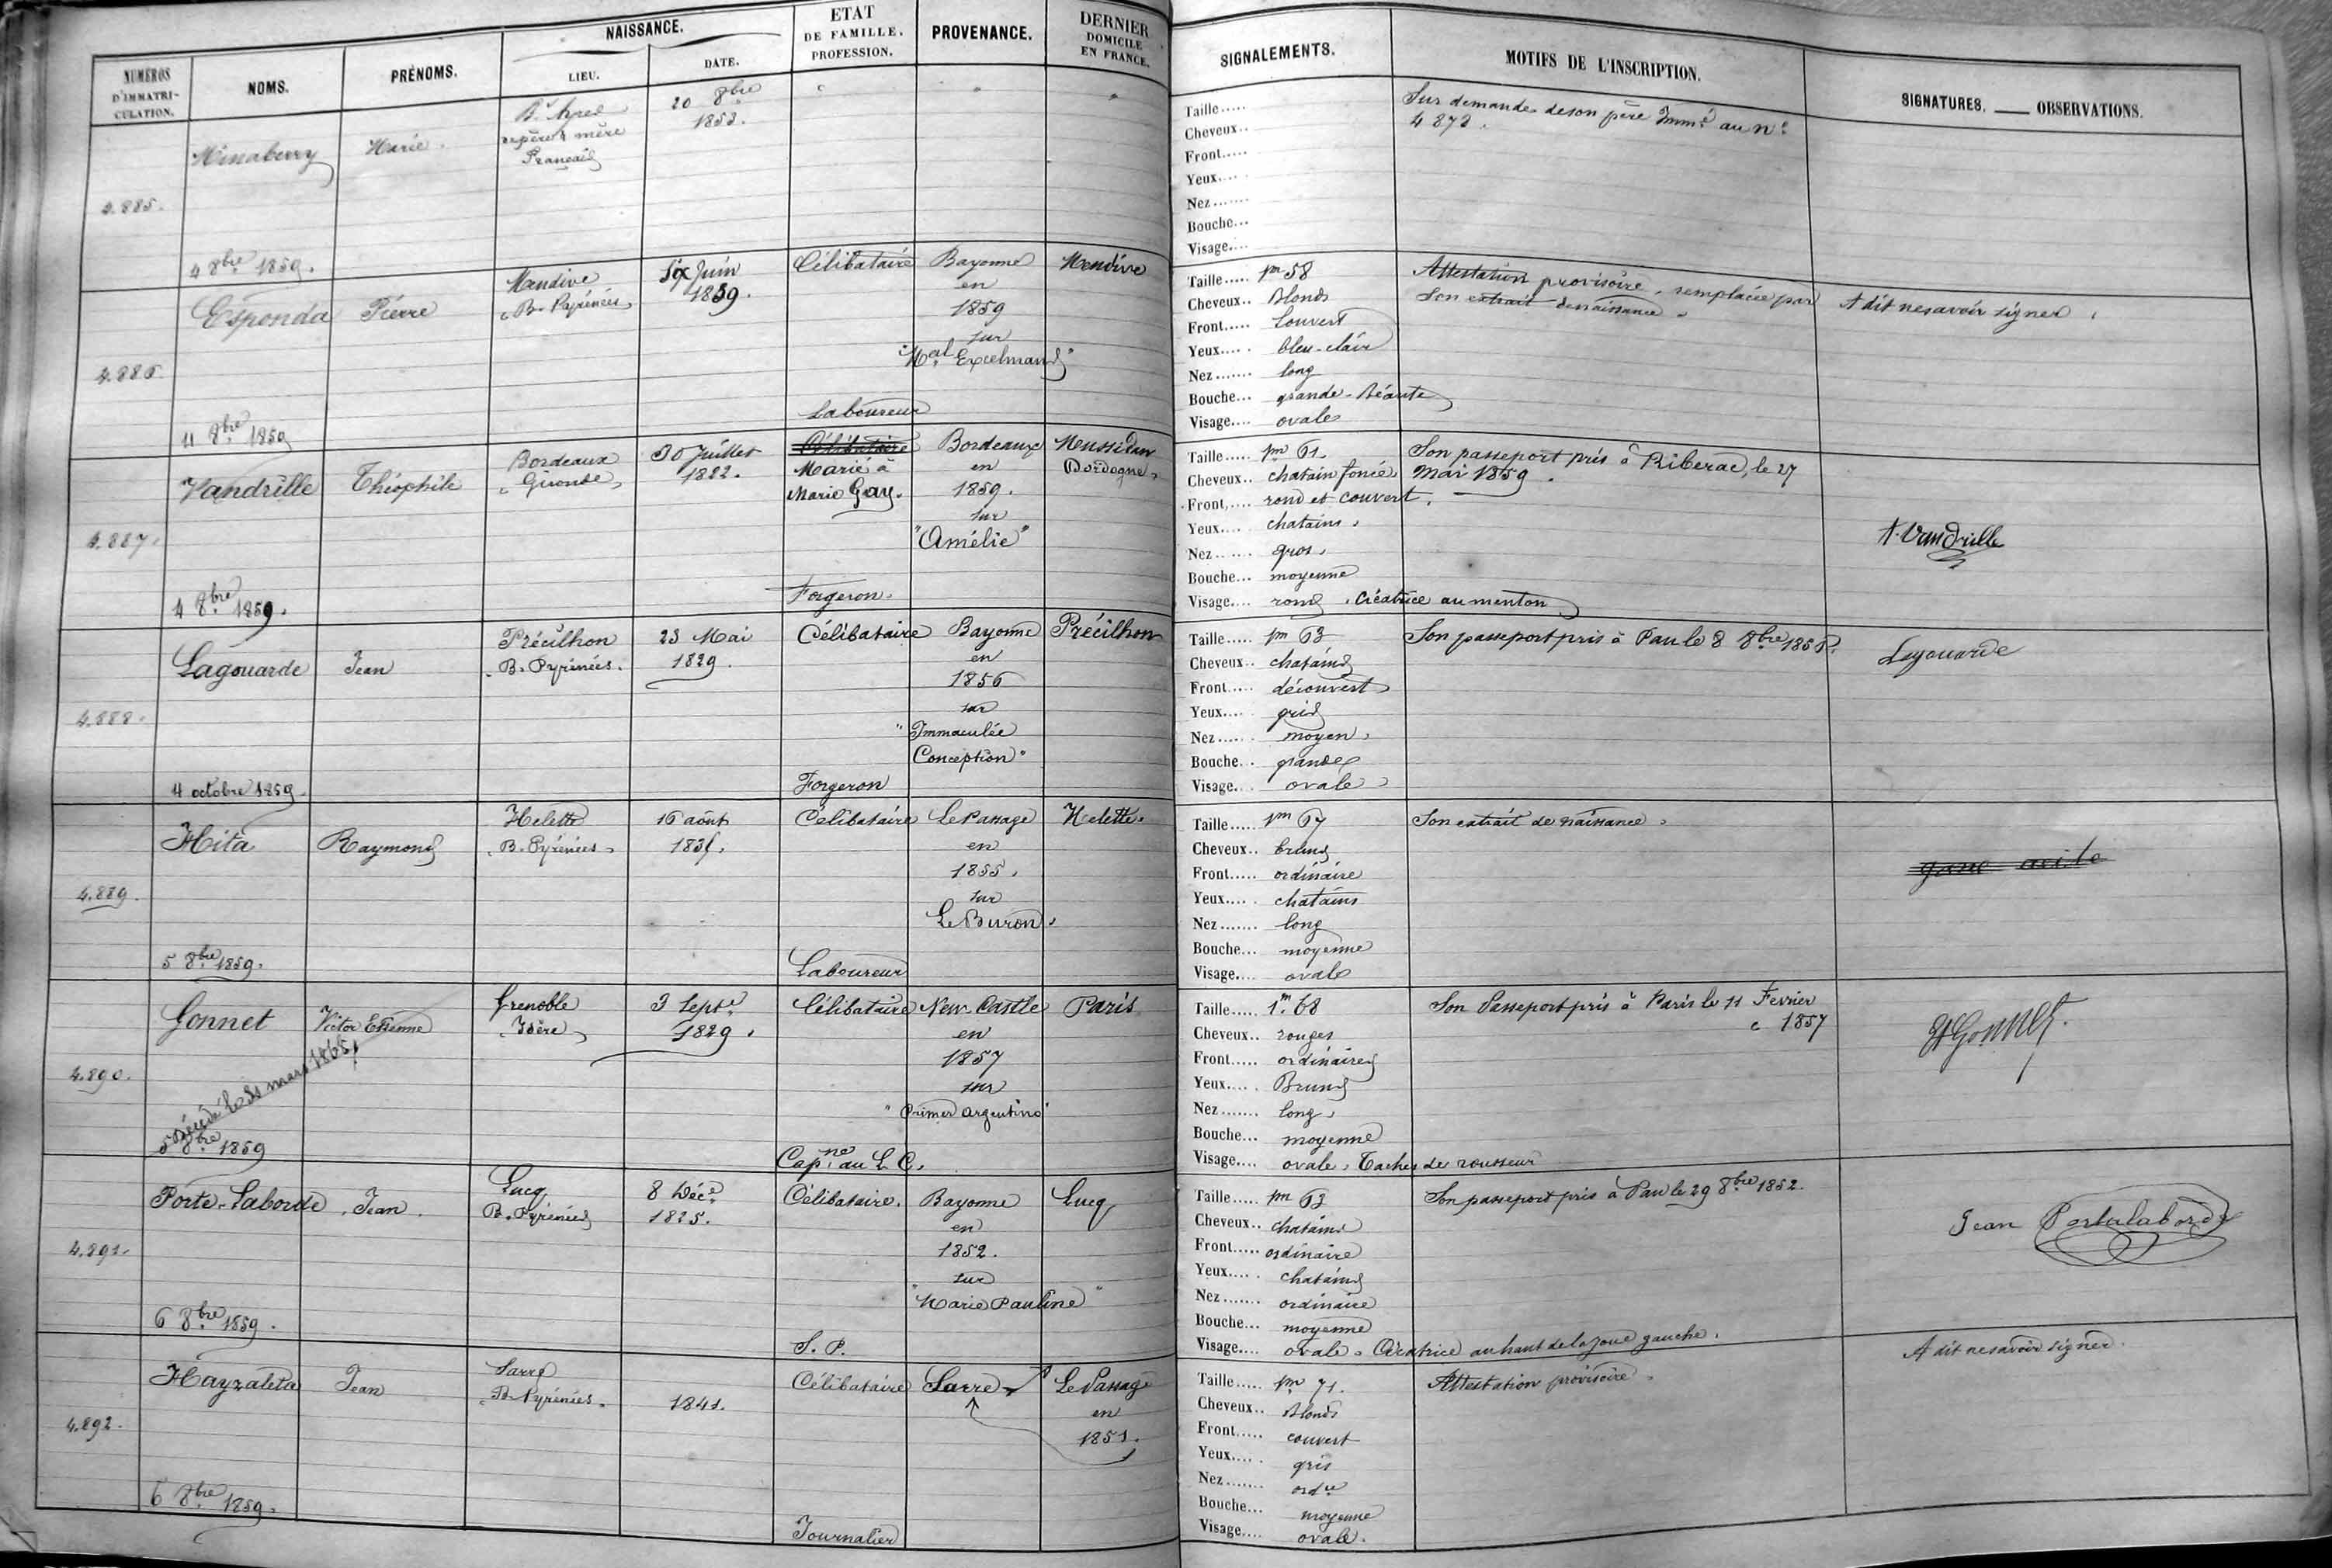 NUMÉROS D'IMMATRI-CULATION.
NOMS.
PRÉNOMS.
NAISSANCE.
LIEU.
DATE.
ETAT DE FAMILLE. PROFESSION.
PROVENANCE.
DERNIER DOMICILE EN FRANCE.
SIGNALEMENTS.
MOTIFS DE L'INSCRIPTION.
SIGNATURES. — OBSERVATIONS.
4.885.
Hinaberry
Marie.
Bs Ayres
père & mère
Français
20 8bre
1853.
4 8bre 1859.
Taille.....
Cheveux..
Front.....
Yeux....
Nez.......
Bouche...
Visage....
Sur demande de son père Immé au No
4872.
4.886
Esponda
Pierre
Mendive
B. Pyrénées
Six Juin
1839.
Célibataire
Laboureur
Bayonne
en
1859
sur
"Mal Excelmans"
Mendive
4 8bre 1859
Taille..... 1m 58
Cheveux.. Blonds
Front..... Couvert
Yeux..... bleu-clair
Nez....... long
Bouche... grande. Béante
Visage.... ovale
Attestation provisoire, remplacée par
Son extrait de naissance.
A dit ne savoir signer.
4.887.
Vandrille
Théophile
Bordeaux
Gironde
30 Juillet
1822.
Célibataire
Marié à
Marie Gay.
Forgeron.
Bordeaux
en
1859.
sur
"Amélie"
Mussidan
Dordogne
4 8bre 1859.
Taille..... 1m 61.
Cheveux.. chatain foncé
Front..... rond et couvert.
Yeux.... chatains.
Nez...... gros.
Bouche... moyenne
Visage.... rond. Cicatrice au menton
Son passeport pris à Riberac, le 27
Mai 1859.
t. Vandrille
4.888.
Lagouarde
Jean
Précilhon
B. Pyrénées.
23 Mai
1829.
Célibataire
Forgeron
Bayonne
en
1856
sur
"Immaculée
Conception"
Précilhon
4 octobre 1859.
Taille..... 1m 63
Cheveux.. chatains
Front..... découvert
Yeux.... gris
Nez...... moyen.
Bouche.. grande
Visage... ovale
Son passeport pris à Pau le 8 8bre 1856.
Lagouarde
4.889.
Hita
Raymond
Helette
B. Pyrénées.
16 août
Célibataire
Laboureur
Le Passage
en
1855.
sur
Le Buron.
Helette.
5 8bre 1859.
Taille..... 1m 67
Cheveux.. bruns
Front..... ordinaire
Yeux..... chatains
Nez....... long
Bouche... moyenne
Visage.... ovale
Son extrait de naissance.
4.890.
Gonnet
Victor Etienne
Grenoble
Isère
3 Septe
1829.
Célibataire
Capne au L. C.
New-Castle
en
1857
sur
"Primer Argentino"
Paris
Décédé le 31 mars 1865
5 8bre 1859
Taille..... 1m. 68
Cheveux.. rouges
Front..... ordinaire
Yeux.... Bruns
Nez....... long.
Bouche... moyenne
Visage.... ovale. Taches de rousseur
Son Passeport pris à Paris le 11 Fevrier
1857
Gonnet.
4.891.
Porte-Laborde
Jean.
Lucq
B. Pyrénées
8 Déce
1825.
Célibataire.
S. P.
Bayonne
en
1852.
sur
"Marie Pauline"
Lucq
6 8bre 1859.
Taille..... 1m 63
Cheveux.. chatains
Front..... ordinaire
Yeux..... chatains
Nez....... ordinaire
Bouche... moyenne
Visage.... ovale. Cicatrice au haut de la joue gauche.
Son passeport pris à Pau le 29 8bre 1852.
Jean Portelaborde
4.892.
Hayzaleta
Jean
Sarre
B. Pyrénées.
1841.
Célibataire
Journalier
Sarre
Le Passage
en
1851.
6 8bre 1859.
Taille..... 1m 71.
Cheveux.. Blonds
Front..... couvert
Yeux.... gris
Nez....... ordre
Bouche... moyenne
Visage.... ovale.
Attestation provisoire.
A dit ne savoir signer.